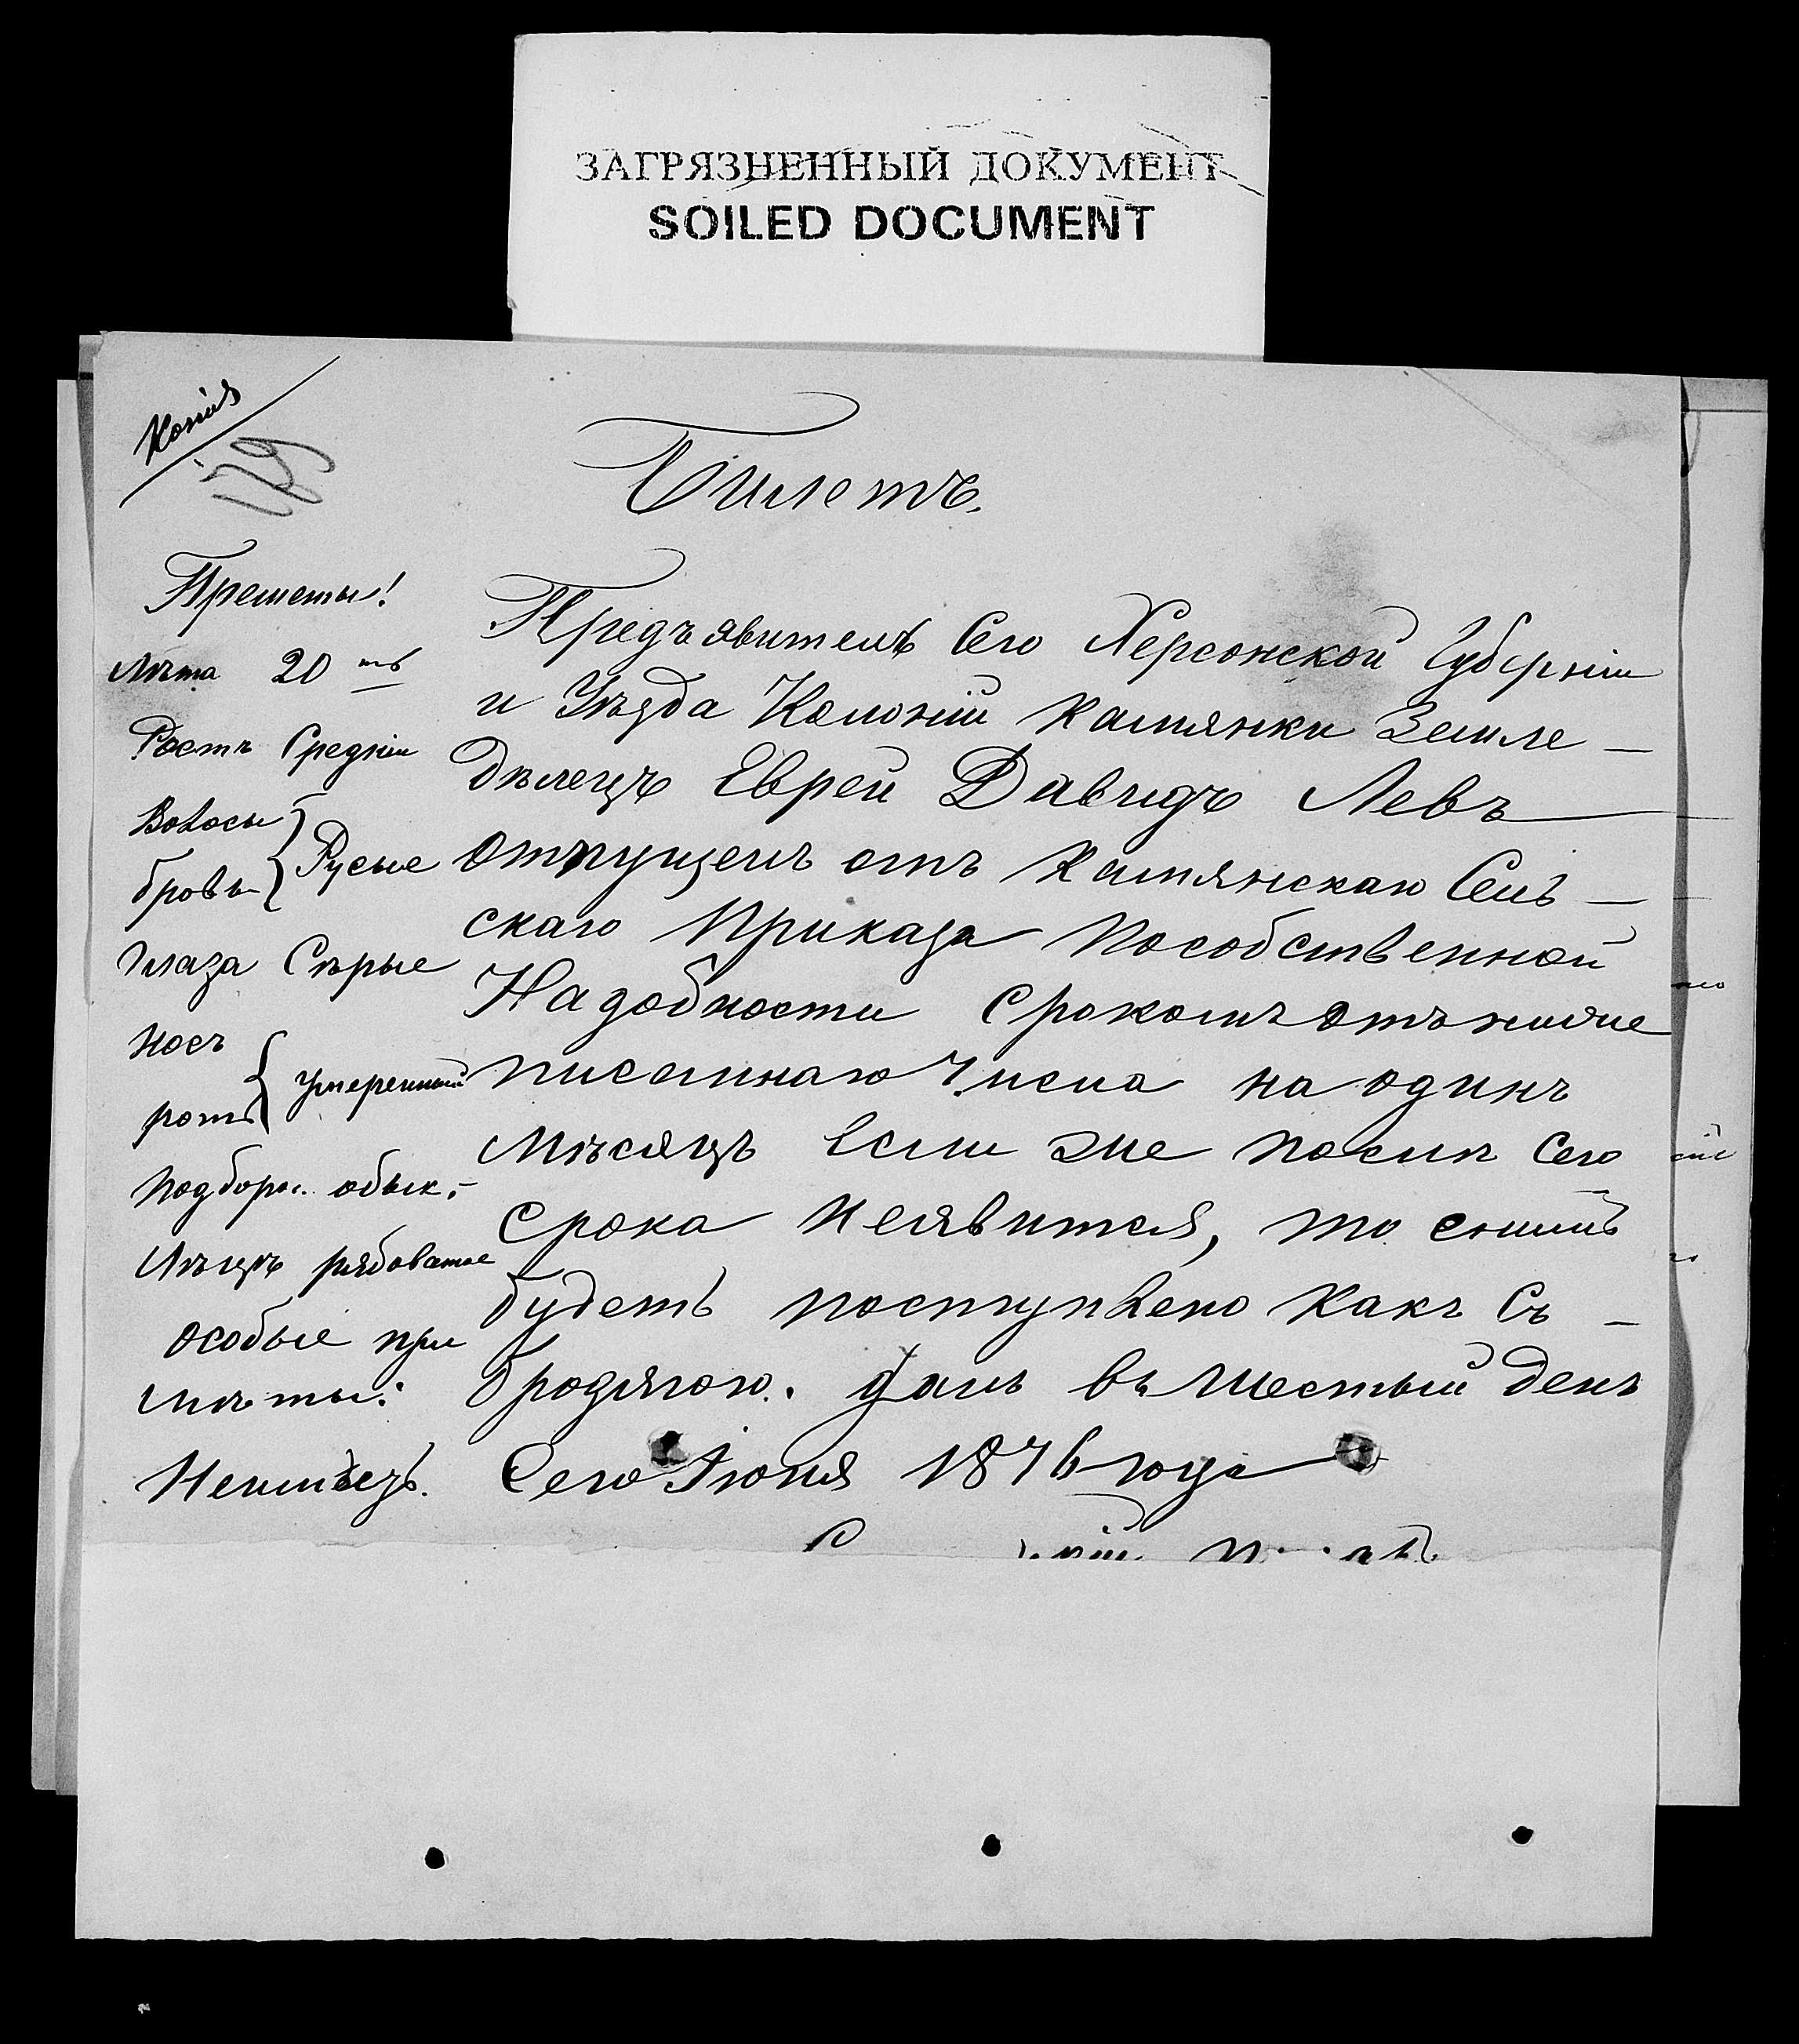 ЗАГРЯЗНЕННЫЙ ДОКУМЕНТ
SOILED DOCUMENT
Копія
Билетъ.
Преметы!
Лѣта 20 ть
Ростъ Средніи
Волосы
бровы
Русые
Глаза Сѣрые
Носъ
ротъ
Умеренный
Подборо. обык.
Лѣцѣ рябоватое
Особые при
мѣты:
Неимѣезъ.
Предъявитель Сего Херсонской Губерніи
и Уѣзда Колоніи Камянки Земле –
дѣлецъ Еврей Давидъ Левъ
отпущенъ отъ Камянскаго Сель –
скаго Приказа Пособственной
Надобности Срокомъ отъ ниже
писаннаго Числа на одинъ
Мѣсяцъ Если же послѣ Сего
Срока Неявится, то снимъ
будетъ поступлено Какъ Съ –
бродягою. Данъ въ шестый день
Сего Іюня 1876 года